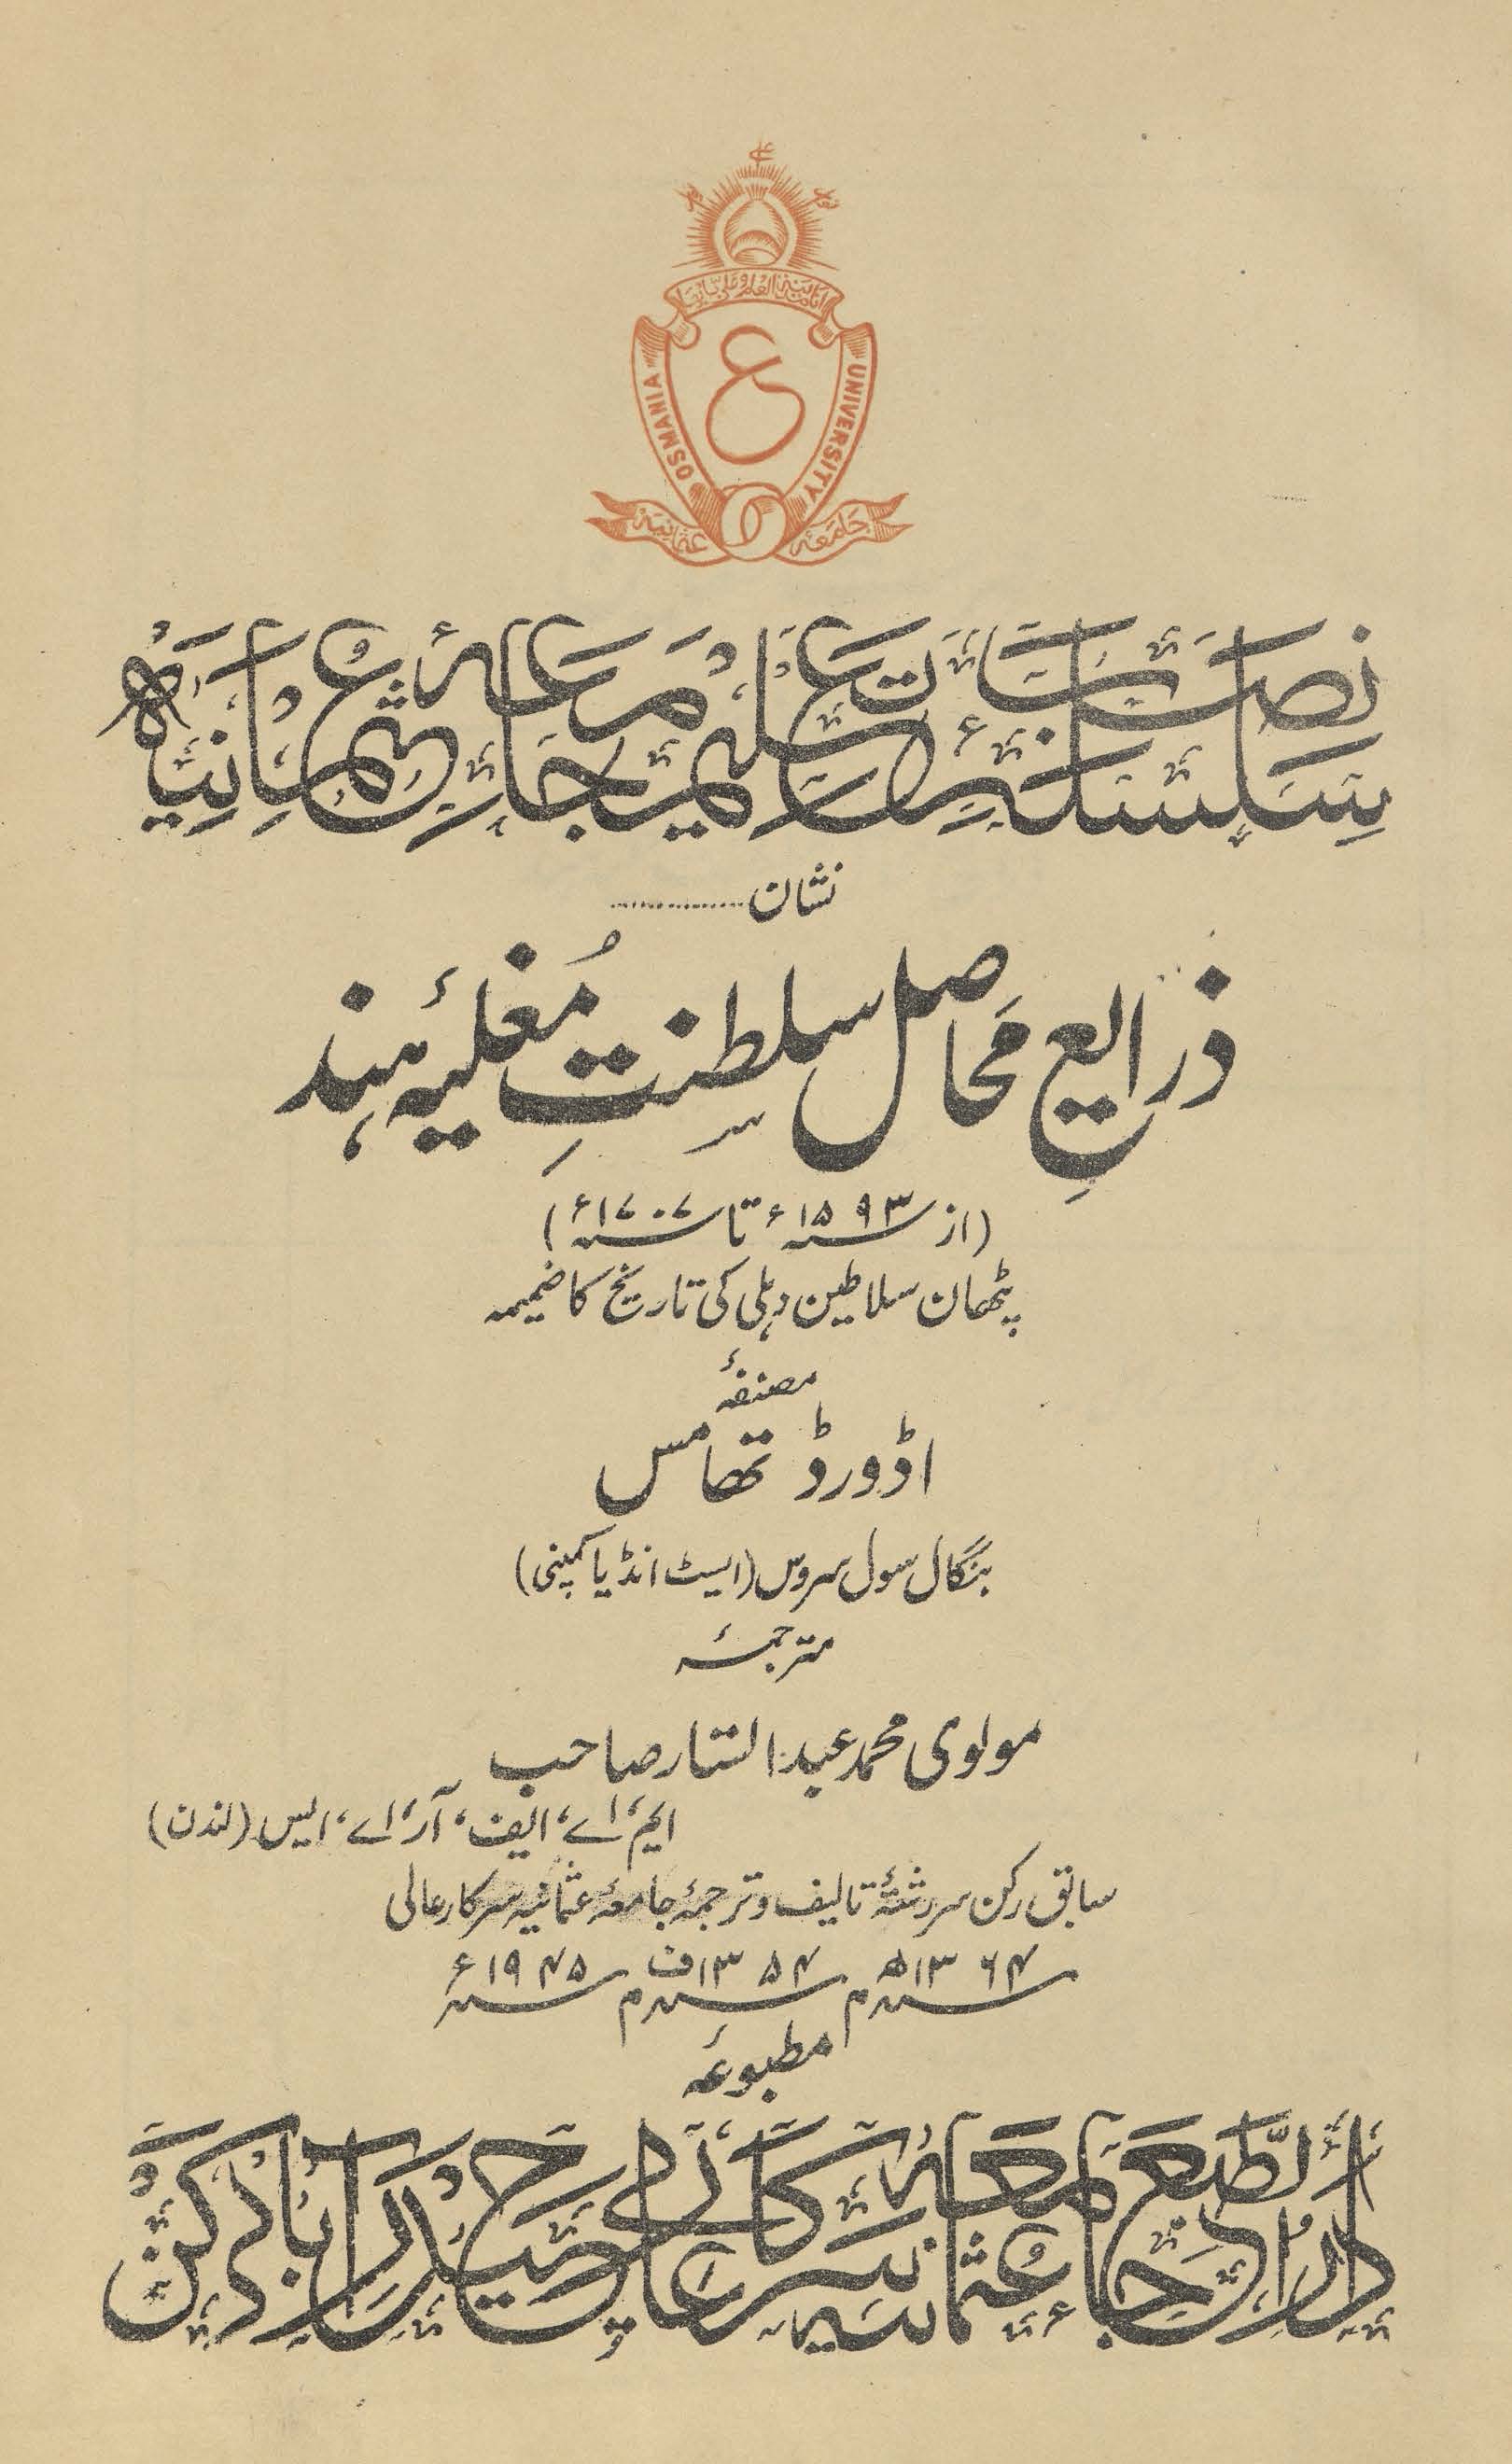 OSMANIA UNIVERSITY
جامعہ عثمانیہ
سلسلہ نصابات تعلیم جامعہ عثمانیہ
نشان..............
ذرایعِ مَحاصل سلطنتِ مُغلیۂ ہند
(از سنہ ۱۵۹۳ء تا سنہ ۱۷۰۷ء)
پٹھان سلاطین دہلی کی تاریخ کا ضمیمہ
مصنفۂ
اڈورڈ تھامس
بنگال سول سروس (ایسٹ انڈیا کمپنی)
مترجمۂ
مولوی محمد عبدالستار صاحب
ایم، اے، ایف، آر، اے، ایس (لندن)
سابق رکن سررشتۂ تالیف و ترجمۂ جامعۂ عثمانیہ سرکارعالی
سنہ ۱۳۶۴ھ م سنہ ۱۳۵۴ف م سنہ ۱۹۴۵ء
مطبوعۂ
دارالطبع جامعہ عثمانیہ سرکارعالی حیدرآباد دکن